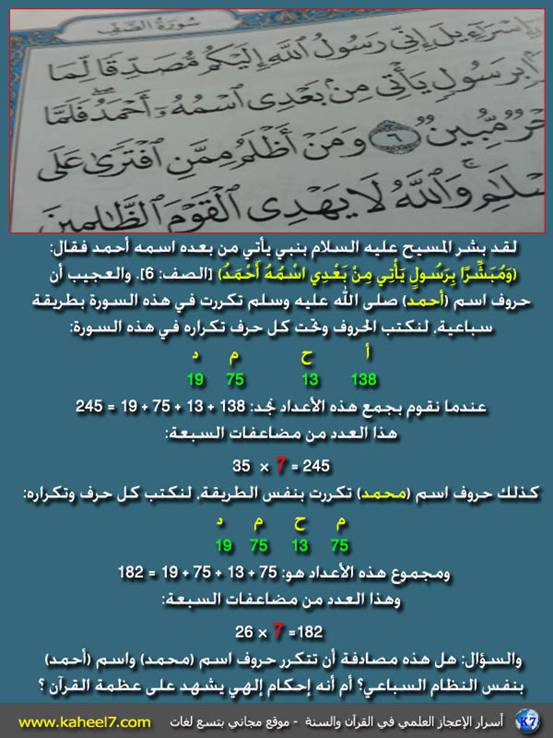 سورة الصف
إِسْرَٰٓءِيلَ إِنِّى رَسُولُ ٱللَّهِ إِلَيْكُم مُّصَدِّقًا لِّمَا
بِرَسُولٍ يَأْتِى مِنۢ بَعْدِى ٱسْمُهُۥٓ أَحْمَدُ ۖ فَلَمَّا
مُّبِينٌ ٦ وَمَنْ أَظْلَمُ مِمَّنِ ٱفْتَرَىٰ عَلَى
وَٱللَّهُ لَا يَهْدِى ٱلْقَوْمَ ٱلظَّٰلِمِينَ
لقد بشر المسيح عليه السلام بنبي يأتي من بعده اسمه أحمد فقال:
(وَمُبَشِّرًا بِرَسُولٍ يَأْتِي مِنْ بَعْدِي اسْمُهُ أَحْمَدُ) [الصف: 6]. والعجيب أن
حروف اسم (أحمد) صلى الله عليه وسلم تكررت في هذه السورة بطريقة
سباعية, لنكتب الحروف وتحت كل حرف تكراره في هذه السورة:
أ ح م د
138 13 75 19
عندما نقوم بجمع هذه الأعداد نجد: 138 + 13 + 75 + 19 = 245
هذا العدد من مضاعفات السبعة:
245 = 7 × 35
كذلك حروف اسم (محمد) تكررت بنفس الطريقة, لنكتب كل حرف وتكراره:
م ح م د
75 13 75 19
ومجموع هذه الأعداد هو: 75 + 13 + 75 + 19 = 182
وهذا العدد من مضاعفات السبعة:
182= 7 × 26
والسؤال: هل هذه مصادفة أن تتكرر حروف اسم (محمد) واسم (أحمد)
بنفس النظام السباعي؟ أم أنه إحكام إلهي يشهد على عظمة القرآن ؟
K7 أسرار الإعجاز العلمي في القرآن والسنة - موقع مجاني بتسع لغات www.kaheel7.com